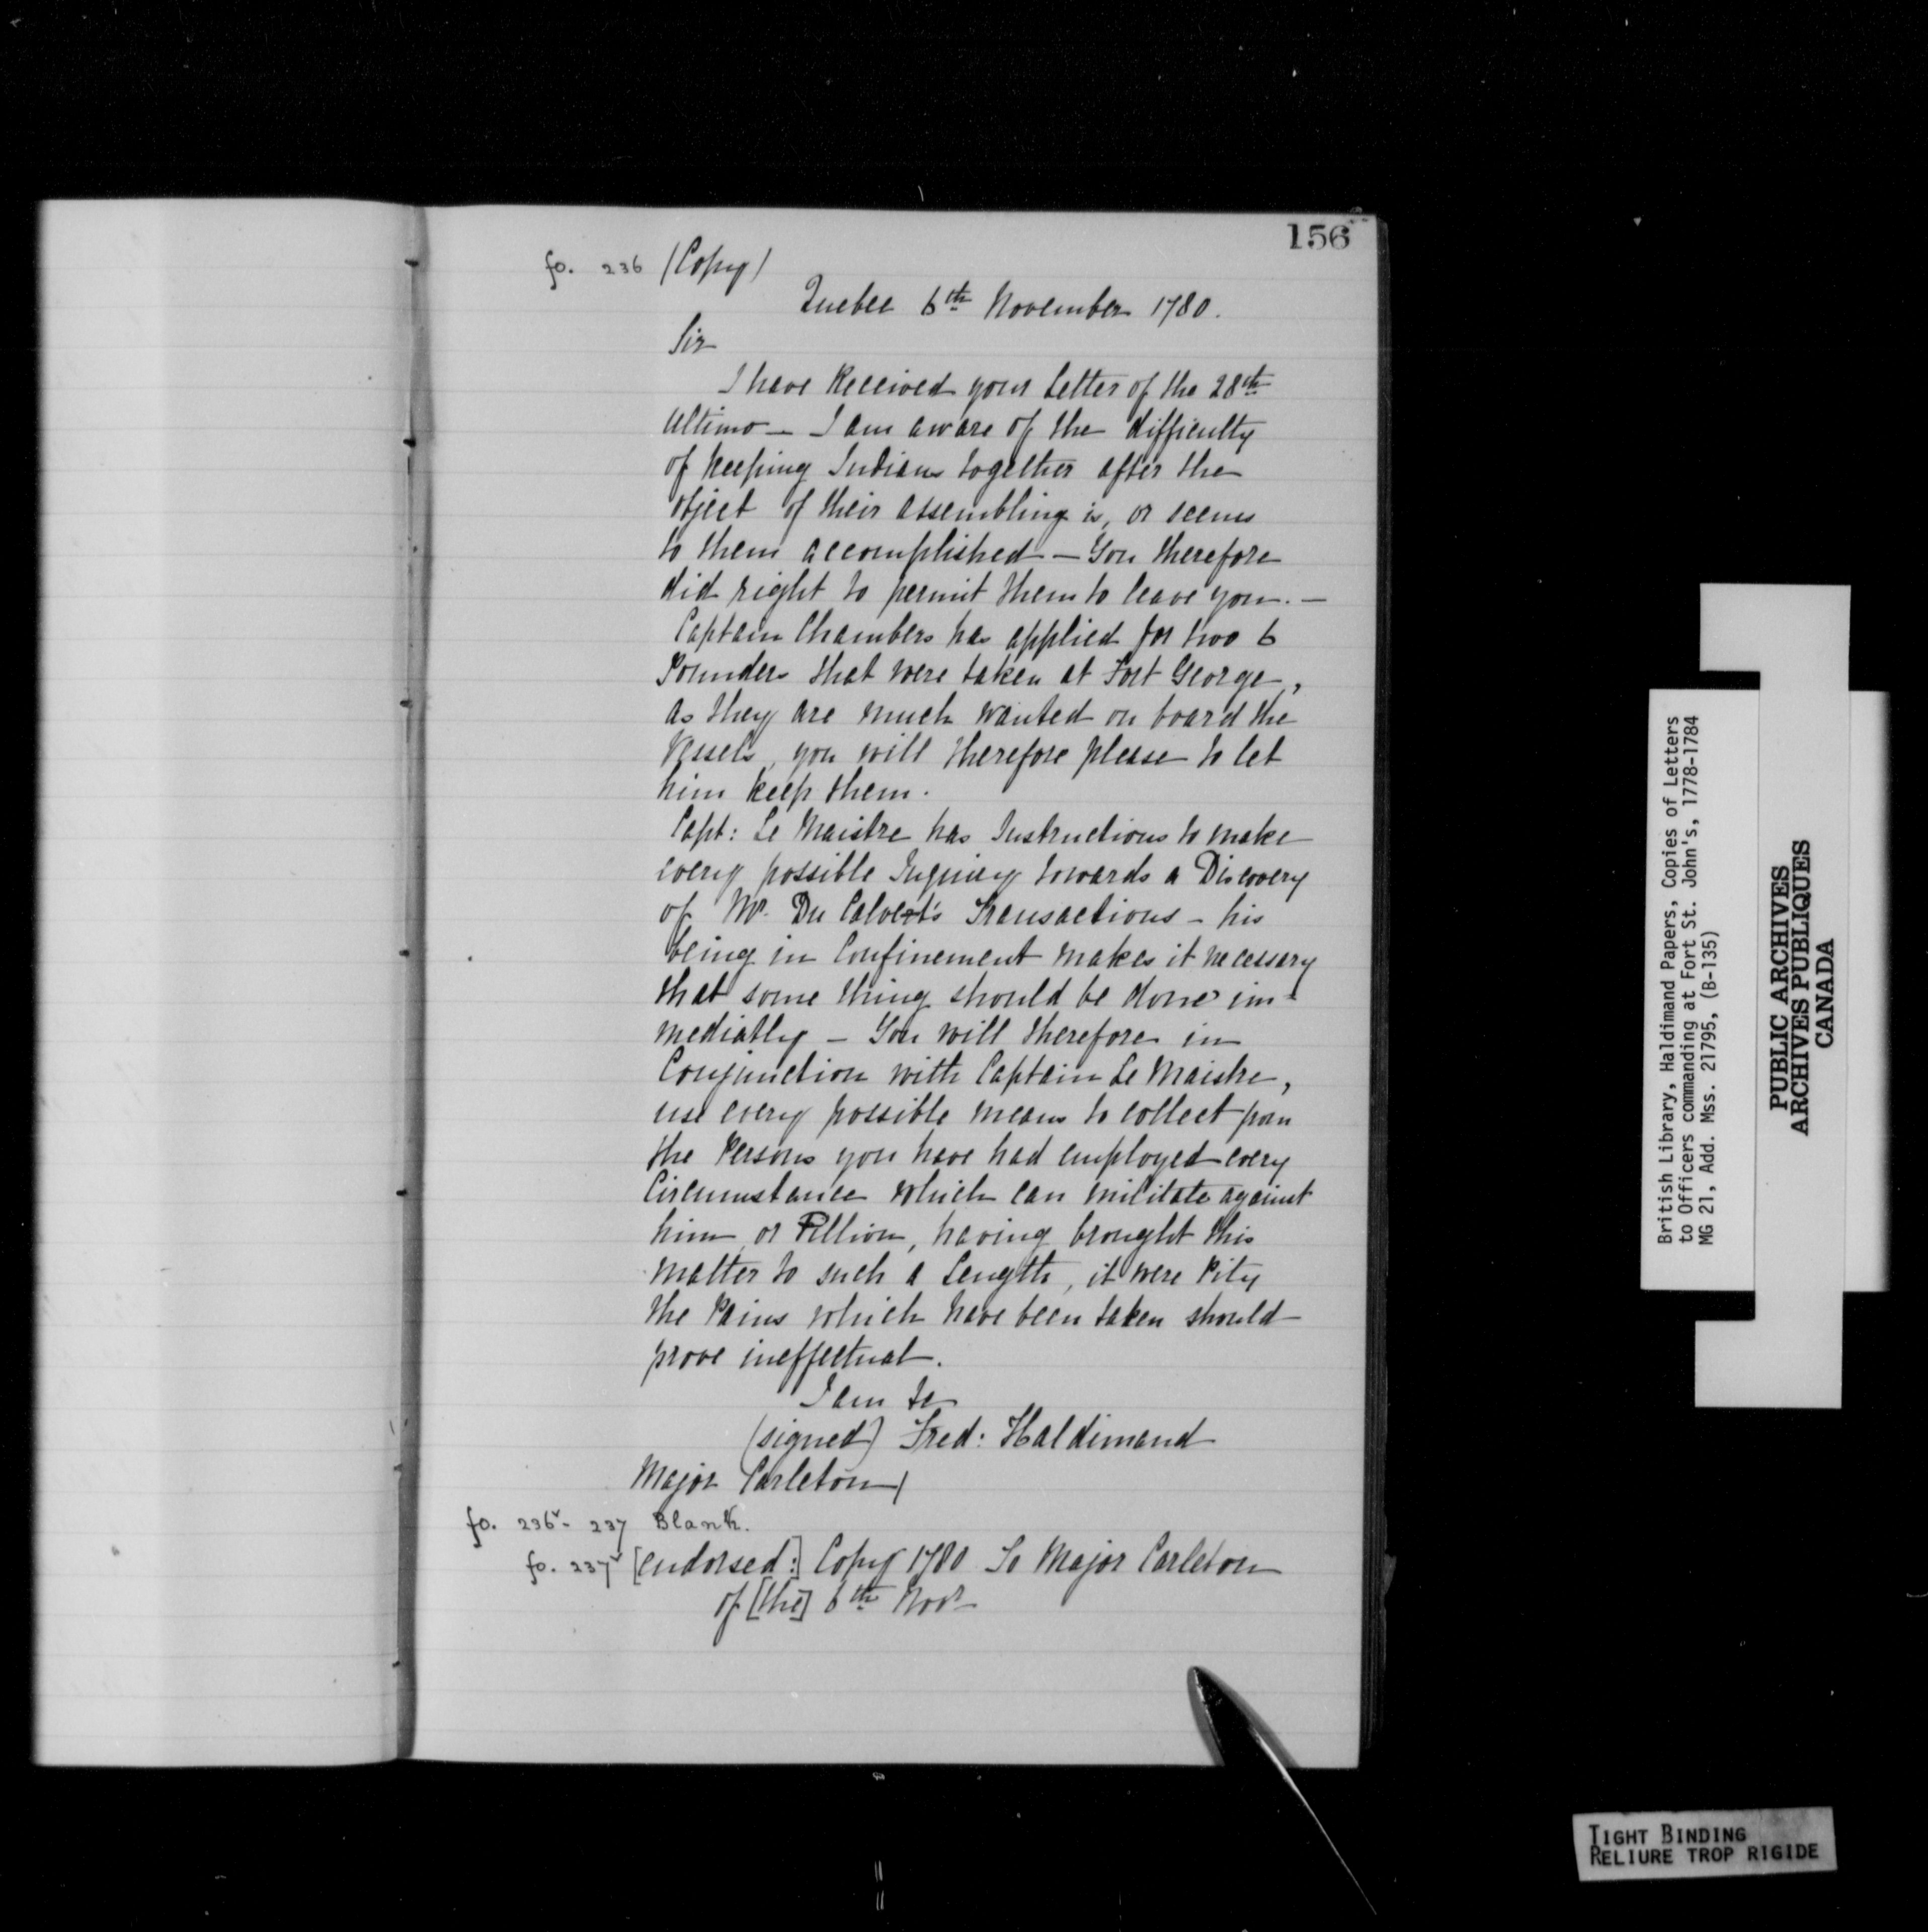 156
fo. 236 (Copy)
Quebec 6th November 1780.
Sir
I have Received your Letter of the 28th
Ultimo — I am aware of the difficulty
of keeping Indians together after the
object of their assembling is, or seems
to them accomplished — You therefore
did right to permit them to leave you. —
Captain Chambers has applied for two 6
Pounders that were taken at Fort George,
as they are much wanted on board the
Vessels, you will therefore please to let
him keep them.
Capt: Le Maistre has Instructions to make
every possible Inquiry towards a Discovery
of Mr. Du Calvert's Transactions – his
being in Confinement makes it necessary
that some thing should be done im-
mediatly – You will therefore in
Conjunction with Captain Le Maistre,
use every possible means to collect from
the Persons you have had employed every
Circumstance which can militate against
him, or Pillion, having brought this
matter to such a Length, it were Pity
the Pains which have been taken should
prove ineffectual.
I am &c
(signed) Fred: Haldimand
Major Carleton/
fo. 236v - 237 Blank.
fo. 237v [endorsed:] Copy 1780 To Major Carleton
of [the] 6th Novr
British Library, Haldimand Papers, Copies of Letters
to Officers commanding at Fort St. John's, 1778-1784
MG 21, Add. Mss. 21795, (B-135)
PUBLIC ARCHIVES
ARCHIVES PUBLIQUES
CANADA
TIGHT BINDING
RELIURE TROP RIGIDE